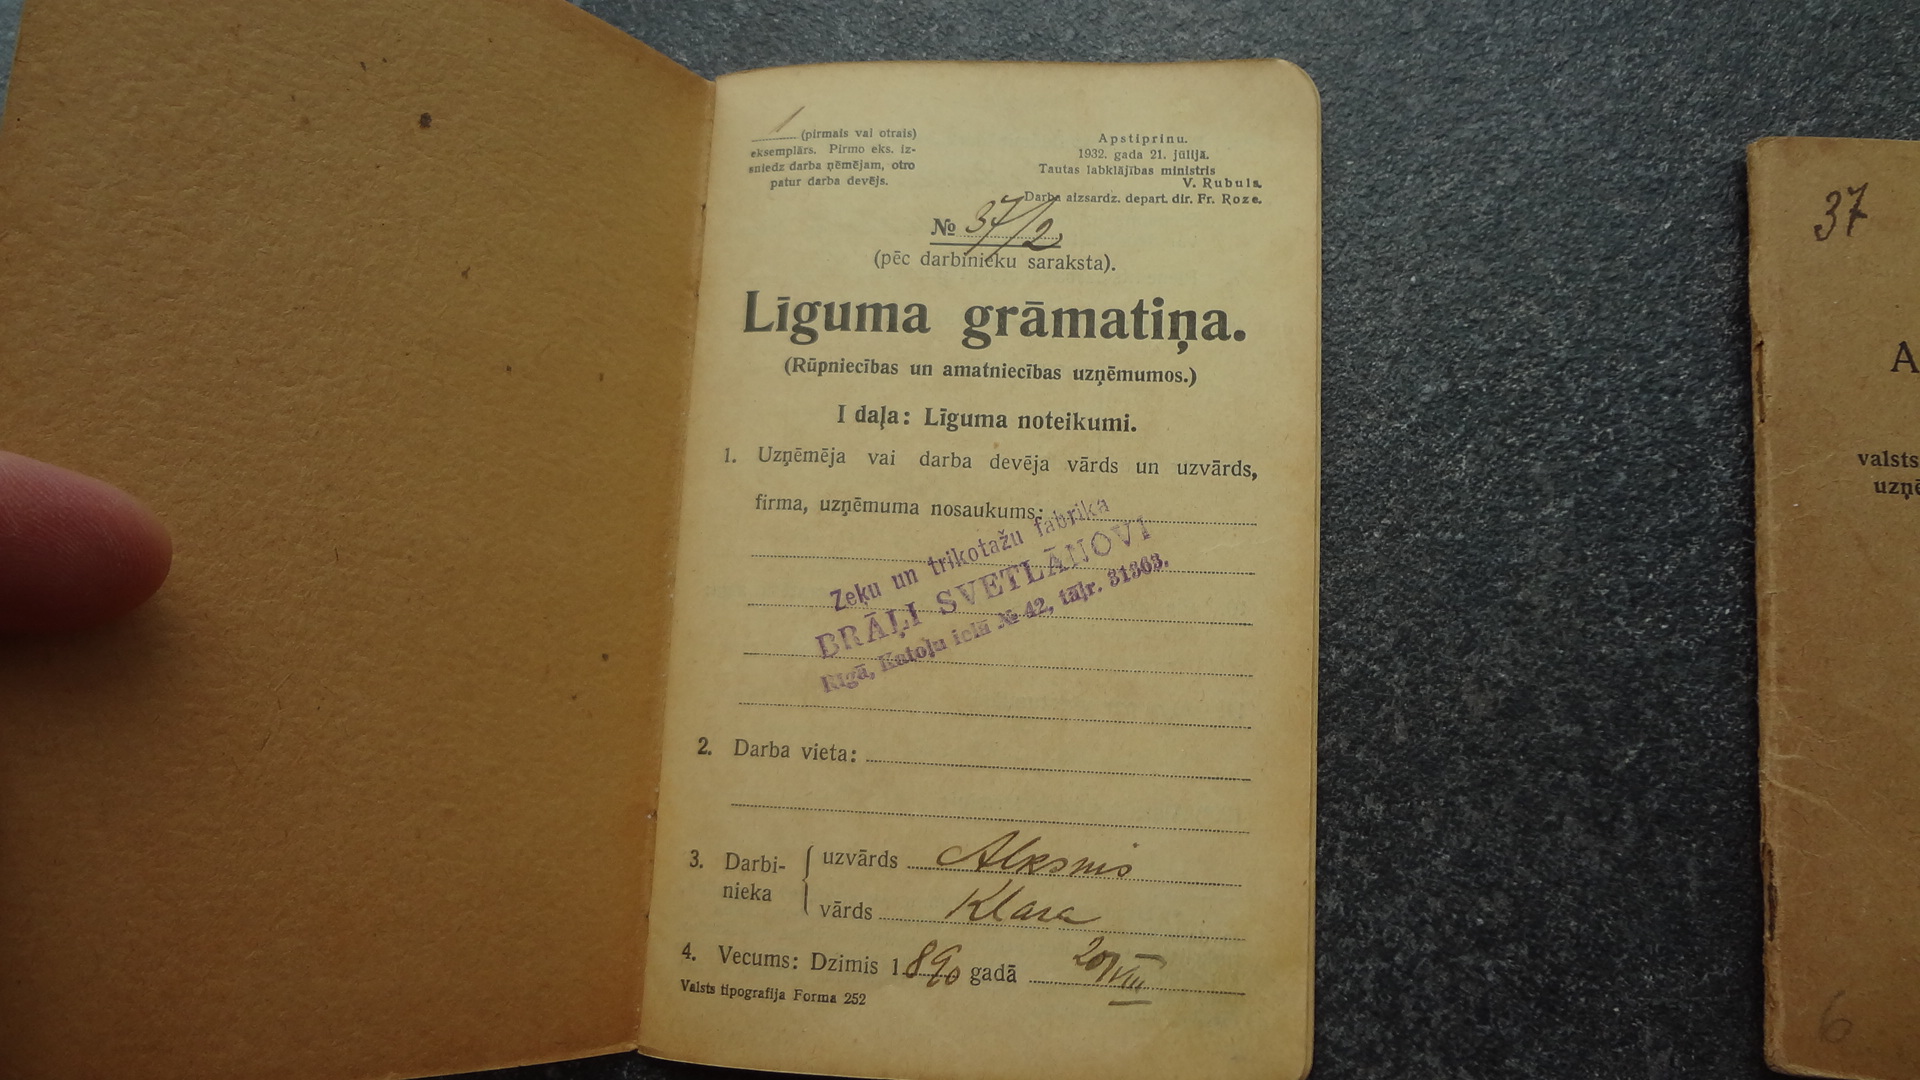 1 (pirmais vai otrais)
eksemplārs. Pirmo eks. iz-
sniedz darba ņēmējam, otro
patur darba devējs.
Apstiprinu.
1932. gada 21. jūlijā.
Tautas labklājības ministris
V. Rubuls.
Darba aizsardz. depart. dir. Fr. Roze.
№ 37/2
(pēc darbinieku saraksta).
Līguma grāmatiņa.
(Rūpniecības un amatniecības uzņēmumos.)
I daļa: Līguma noteikumi.
1. Uzņēmēja vai darba devēja vārds un uzvārds,
firma, uzņēmuma nosaukums:
Zeķu un trikotažu fabrika
BRĀĻI SVETLĀNOVI
Rīgā, Katoļu ielā № 42, tāļr. 31363.
2. Darba vieta:
3. Darbi-
nieka
uzvārds Alksnis
vārds Klara
4. Vecums: Dzimis 1890 gadā 20/VIII
Valsts tipografija Forma 252
37
A
valsts
uzņē
6